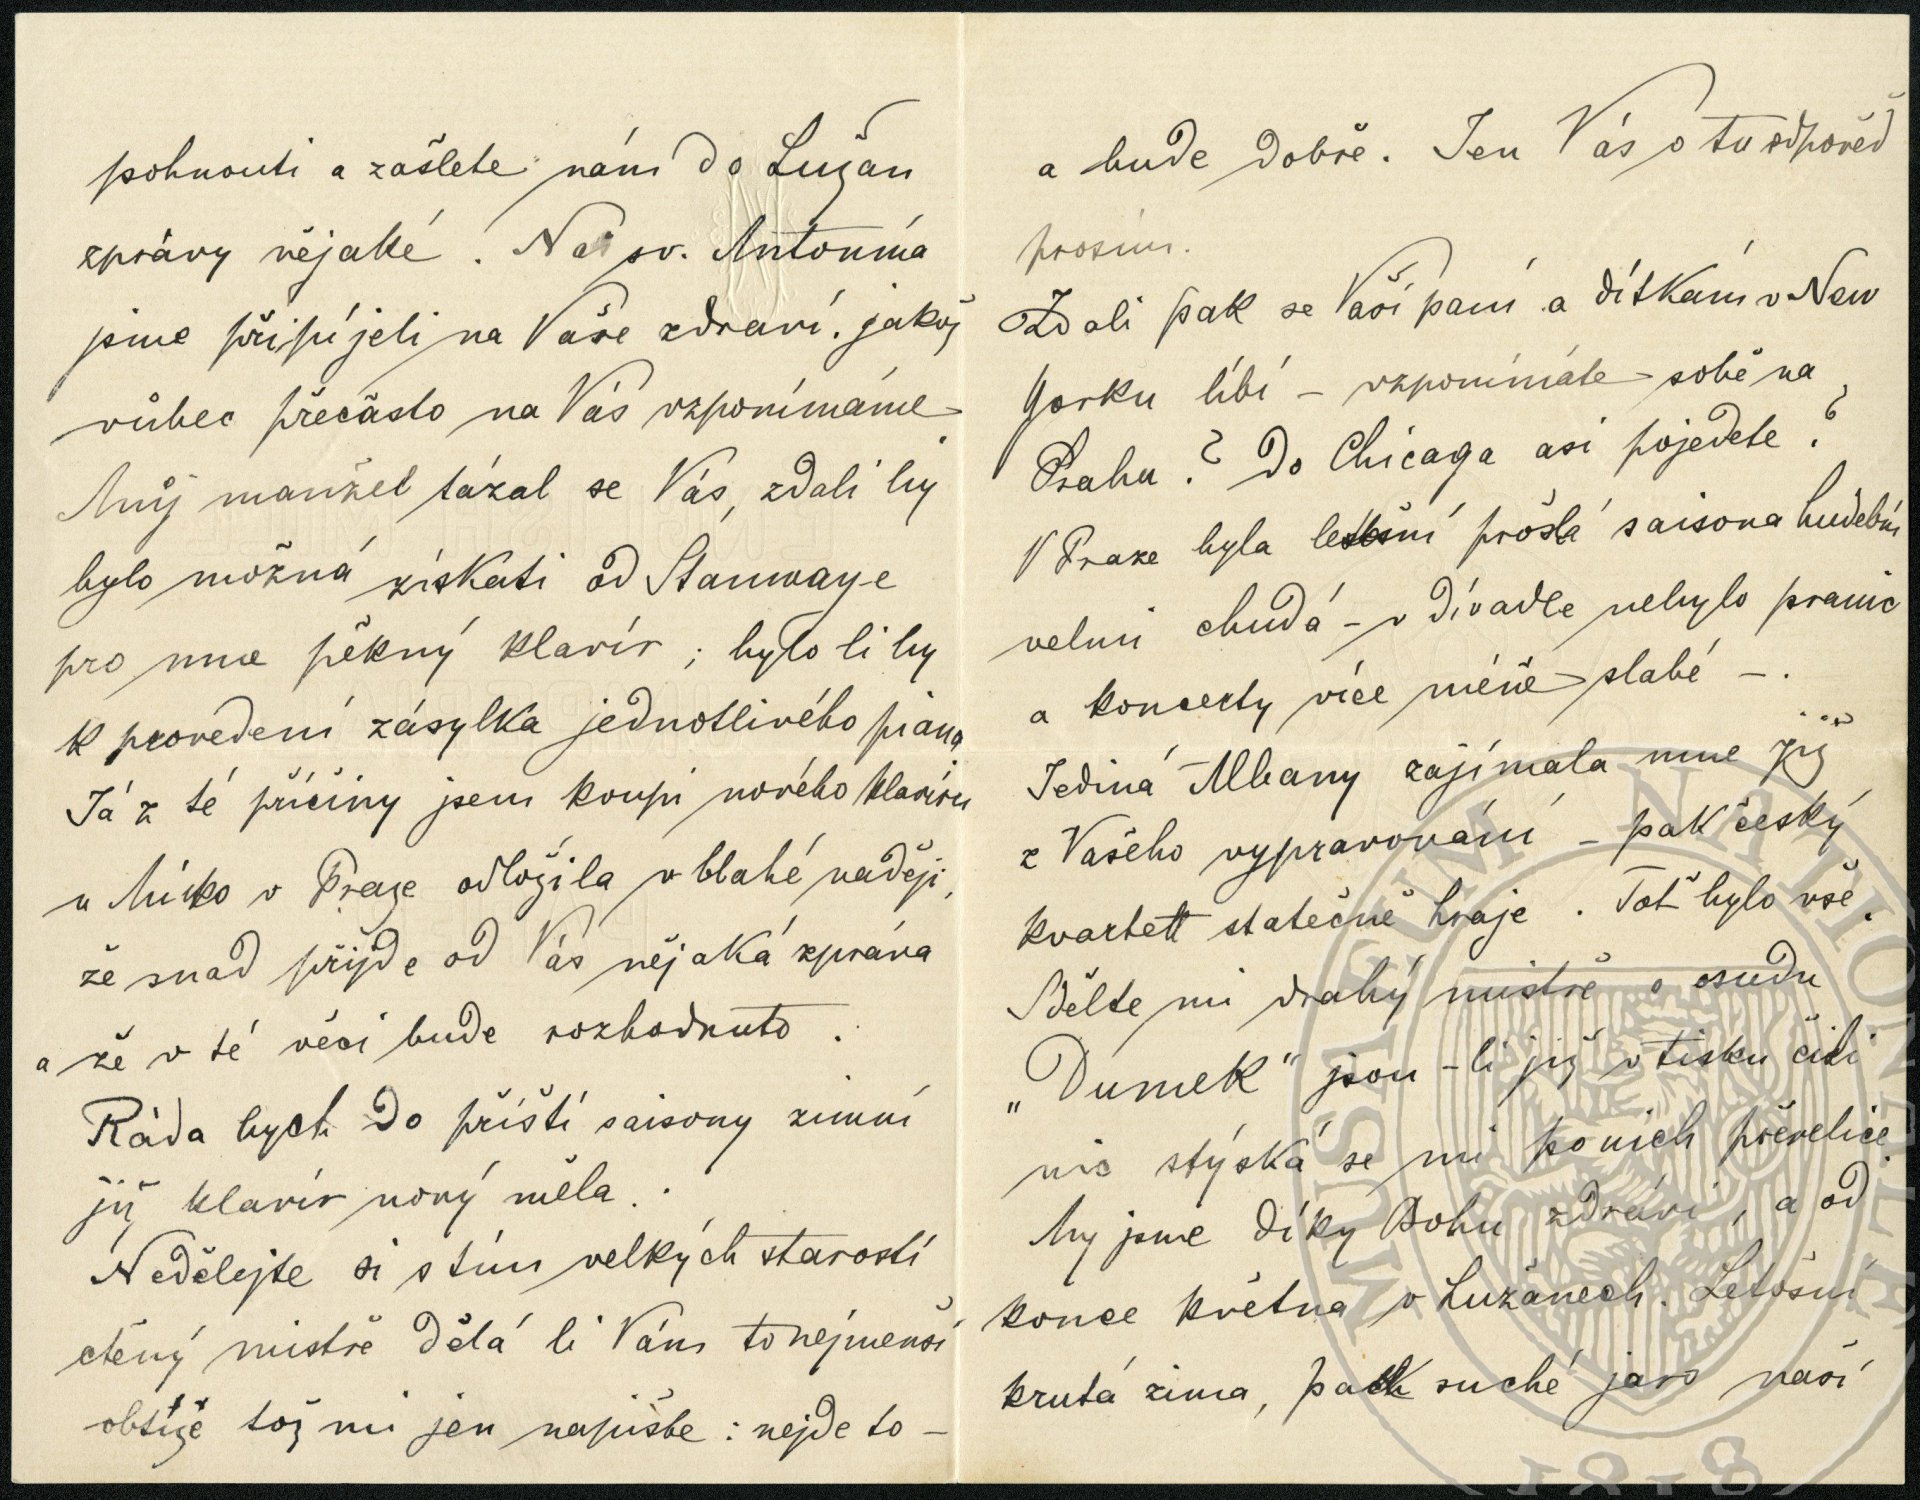 pohnouti a zašlete nám do Lužan
zprávy nějaké. Na sv. Antonína
jsme připíjeli na Vaše zdraví. jakož
vůbec přečasto na Vás vzpomínáme
Můj manžel tázal se Vás, zdali by
bylo možná získati od Stanwaye
pro mne pěkný klavír; bylo li by
k provedení zásylka jednotlivého piana
Já z té příčiny jsem koupi nového klavíru
u Micko v Praze odložila v blahé naději,
že snad přijde od Vás nějaká zpráva
a že v té věci bude rozhodnuto.
Ráda bych do příští saisony zimní
již klavír nový měla.
Nedělejte si s tím velkých starostí
ctěný mistře dělá li Vám to nejmenší
obtíže tož mi jen napište: nejde to –
a bude dobře. Jen Vás o tu odpověď
prosím.
Zdali pak se Vaší paní a dítkám v New
Yorku líbí – vzpomínáte sobě na
Prahu? Do Chicaga asi pojedete?
V Praze byla letošní prošlá saisona hudební
velmi chudá – v divadle nebylo pranic
a koncerty více méně slabé –.
Jediná Albany zajímala mne již
z Vašeho vypravování – pak český
kvartett statečně hraje. Toť bylo vše.
Sdělte mi drahý mistře o osudu
„Dumek" jsou-li již v tisku čili
nic stýská se mi po nich převelice.
My jsme díky Bohu zdrávi, a od
konce května v Lužanech. Letošní
krutá zima, pak suché jaro naší
MUSEUM NATIONALE
1818